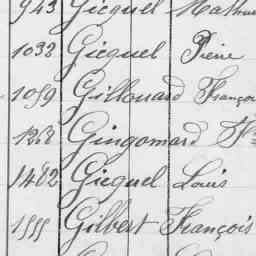 943 Gicquel Mathu
1032 Gicquel Pierre
1059 Gillouard Françoi
1268 Gingomard
1482 Gicquel Louis
1555 Gilbert François